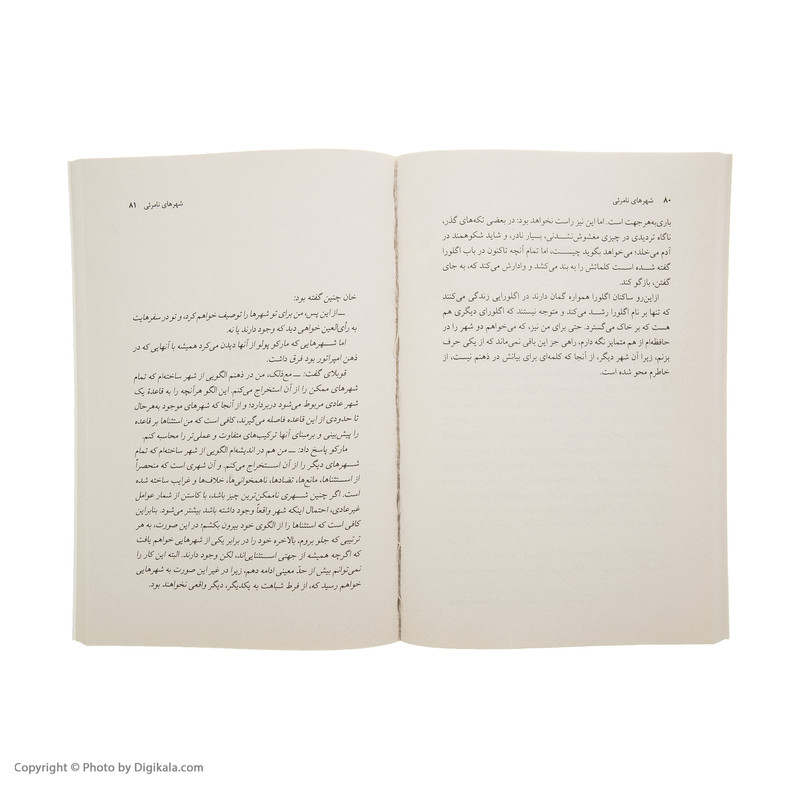 ۸۰ شهرهای نامرئی
باری‌به‌هرجهت است. اما این نیز راست نخواهد بود: در بعضی تکه‌های گذر،
ناگاه تردیدی در چیزی مغشوش‌نشدنی، بسیار نادر، و شاید شکوهمند در
آدم می‌خلد؛ می‌خواهد بگوید چیست، اما تمام آنچه تاکنون در باب اگلورا
گفته شده است کلماتش را به بند می‌کشد و وادارش می‌کند که، به جای
گفتن، بازگو کند.
ازاین‌رو ساکنان اگلورا همواره گمان دارند در اگلورایی زندگی می‌کنند
که تنها بر نام اگلورا رشد می‌کند و متوجه نیستند که اگلورای دیگری هم
هست که بر خاک می‌گسترد. حتی برای من نیز، که می‌خواهم دو شهر را در
حافظه‌ام از هم متمایز نگه دارم، راهی جز این باقی نمی‌ماند که از یکی حرف
بزنم، زیرا آن شهر دیگر، از آنجا که کلمه‌ای برای بیانش در ذهنم نیست، از
خاطرم محو شده است.
شهرهای نامرئی ۸۱
خان چنین گفته بود:
ــ از این پس، من برای تو شهرها را توصیف خواهم کرد، و تو در سفرهایت
به رأی‌العین خواهی دید که وجود دارند یا نه.
اما شهرهایی که مارکو پولو از آنها دیدن می‌کرد همیشه با آنهایی که در
ذهن امپراتور بود فرق داشت.
قوبلای گفت: ــ مع‌ذلک، من در ذهنم الگویی از شهر ساخته‌ام که تمام
شهرهای ممکن را از آن استخراج می‌کنم. این الگو هرآنچه را به قاعدهٔ یک
شهر عادی مربوط می‌شود دربردارد؛ و از آنجا که شهرهای موجود به‌هرحال
تا حدودی از این قاعده فاصله می‌گیرند، کافی است که من استثناها بر قاعده
را پیش‌بینی و برمبنای آنها ترکیب‌های متفاوت و عملی‌تر را محاسبه کنم.
مارکو پاسخ داد: ــ من هم در اندیشه‌ام الگویی از شهر ساخته‌ام که تمام
شهرهای دیگر را از آن استخراج می‌کنم. و آن شهری است که منحصراً
از استثناها، مانع‌ها، تضادها، ناهمخوانی‌ها، خلاف‌ها و غرایب ساخته شده
است. اگر چنین شهری ناممکن‌ترین چیز باشد، با کاستن از شمار عوامل
غیرعادی، احتمال اینکه شهر واقعاً وجود داشته باشد بیشتر می‌شود. بنابراین
کافی است که استثناها را از الگوی خود بیرون بکشم؛ در این صورت، به هر
ترتیبی که جلو بروم، بالاخره خود را در برابر یکی از شهرهایی خواهم یافت
که اگرچه همیشه از جهتی استثنایی‌اند، لکن وجود دارند. البته این کار را
نمی‌توانم بیش از حدّ معینی ادامه دهم، زیرا در غیر این صورت به شهرهایی
خواهم رسید که، از فرط شباهت به یکدیگر، دیگر واقعی نخواهند بود.
Copyright © Photo by Digikala.com